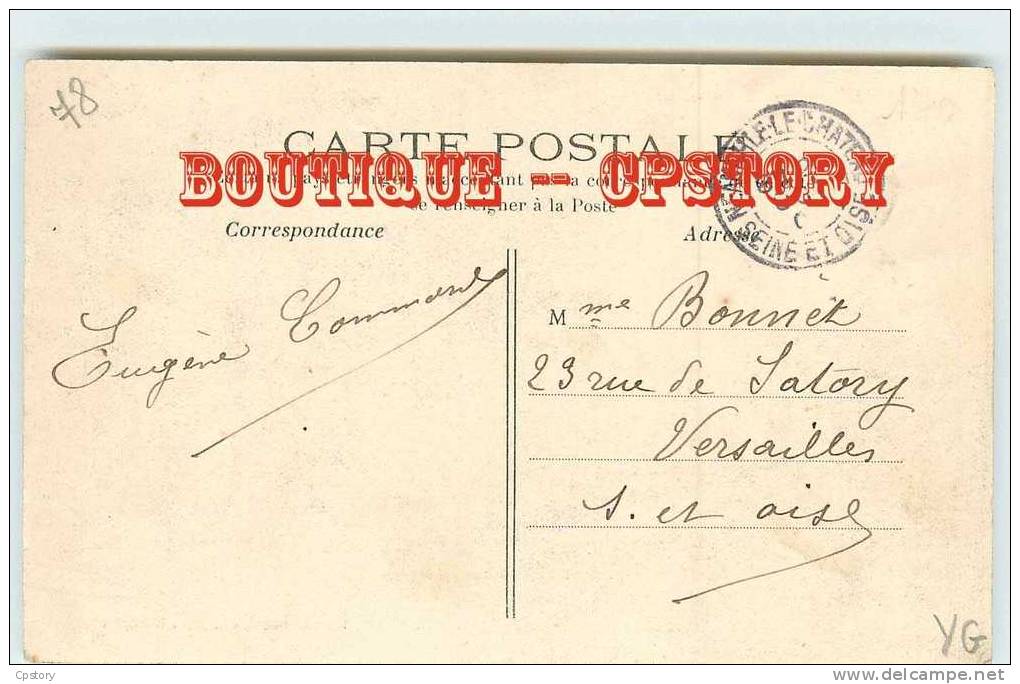 78
CARTE POSTALE
BOUTIQUE -- CPSTORY
se renseigner à la Poste
Correspondance
Adresse
LE-CHATEAU
SEINE ET OISE
Eugène Commard
Mme Bonnet
23 rue de Satory
Versailles
S. et oise
YG
Cpstory
www.delcampe.net